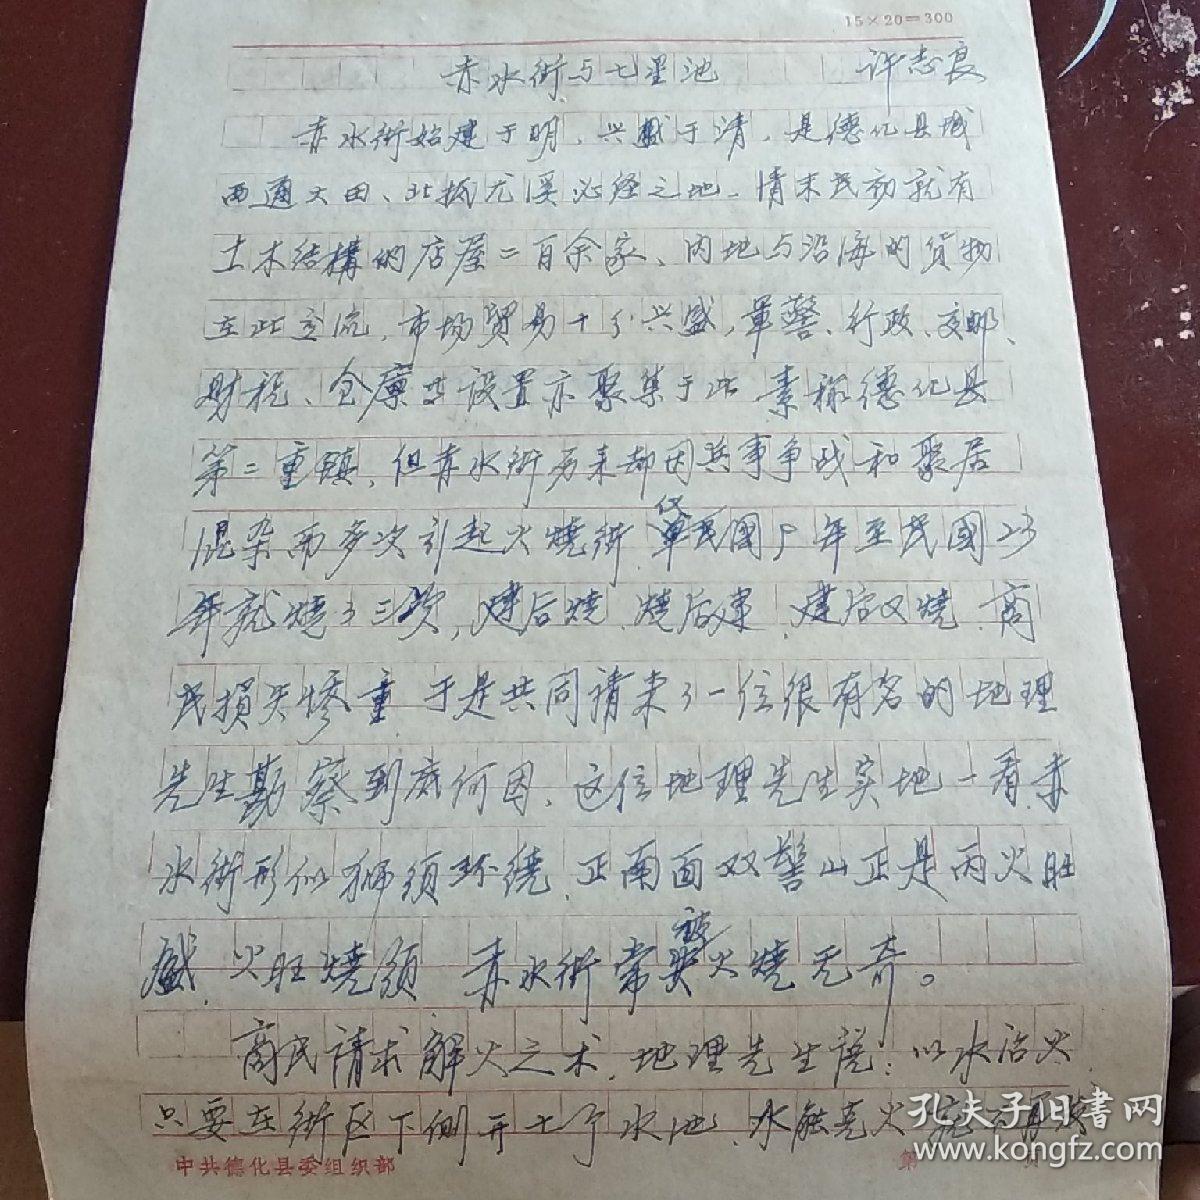 15×20=300
赤水街与七星池 许志良
赤水街始建于明、兴盛于清，是德化县城
西通大田、北抵尤溪必经之地。清末民初就有
土木结構的店屋二百余家、内地与沿海的货物
在此交流，市场贸易十分兴盛，軍警、行政、交邮、
财税、仓廪等设置亦聚集于此 素称德化县
第二重镇，但赤水街历来却因兵事争战和聚居
混杂而多次引起火燒街，仅民國5年至民國23
年就燒了三次，建后燒、燒后建、建后又燒、商
民損失惨重 于是共同请来了一位很有名的地理
先生勘察到底何因、这位地理先生实地一看，赤
水街形似狮须环绕，正南面双髻山正是丙火旺
盛，火旺燒须 赤水街常被火燒无奇。
商民請求解火之术，地理先生说：以水治火
只要在街区下侧开七个水池、水能克火
中共德化县委组织部 第
孔夫子旧書网
www.kongfz.com